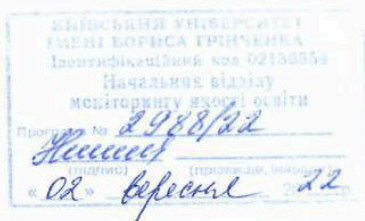 КИЇВСЬКИЙ УНІВЕРСИТЕТ
ІМЕНІ БОРИСА ГРІНЧЕНКА
Ідентифікаційний код 02136554
Начальник відділу
моніторингу якості освіти
Програма № 2988/22
(підпис) (прізвище, ініціали)
« 02 » вересня 2022 р.